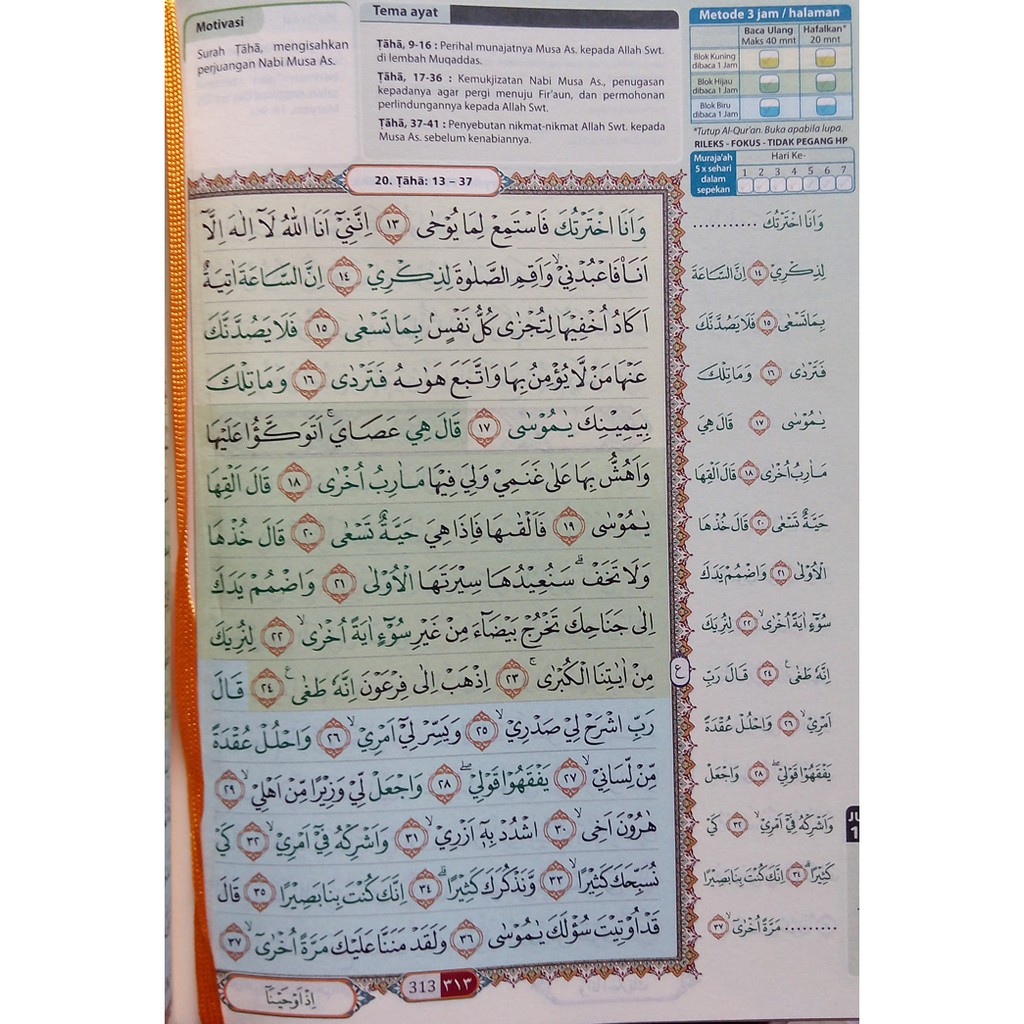 Motivasi
Surah Ṭāhā, mengisahkan
perjuangan Nabi Musa As.
Tema ayat
Ṭāhā, 9-16 : Perihal munajatnya Musa As. kepada Allah Swt.
di lembah Muqaddas.
Ṭāhā, 17-36 : Kemukjizatan Nabi Musa As., penugasan
kepadanya agar pergi menuju Fir'aun, dan permohonan
perlindungannya kepada Allah Swt.
Ṭāhā, 37-41 : Penyebutan nikmat-nikmat Allah Swt. kepada
Musa As. sebelum kenabiannya.
Metode 3 jam / halaman
Baca Ulang Maks 40 mnt
Hafalkan* 20 mnt
Blok Kuning dibaca 1 Jam
Blok Hijau dibaca 1 Jam
Blok Biru dibaca 1 Jam
*Tutup Al-Qur'an. Buka apabila lupa.
RILEKS - FOKUS - TIDAK PEGANG HP
Muraja'ah 5 x sehari dalam sepekan
Hari Ke-
1 2 3 4 5 6 7
20. Ṭāhā: 13 – 37
وَاَنَا اخْتَرْتُكَ فَاسْتَمِعْ لِمَا يُوْحٰى ١٣ اِنَّنِيْٓ اَنَا اللّٰهُ لَآ اِلٰهَ اِلَّآ
اَنَا۠ فَاعْبُدْنِيْۙ وَاَقِمِ الصَّلٰوةَ لِذِكْرِيْ ١٤ اِنَّ السَّاعَةَ اٰتِيَةٌ
اَكَادُ اُخْفِيْهَا لِتُجْزٰى كُلُّ نَفْسٍۢ بِمَا تَسْعٰى ١٥ فَلَا يَصُدَّنَّكَ
عَنْهَا مَنْ لَّا يُؤْمِنُ بِهَا وَاتَّبَعَ هَوٰىهُ فَتَرْدٰى ١٦ وَمَا تِلْكَ
بِيَمِيْنِكَ يٰمُوْسٰى ١٧ قَالَ هِيَ عَصَايَۚ اَتَوَكَّؤُا عَلَيْهَا
وَاَهُشُّ بِهَا عَلٰى غَنَمِيْ وَلِيَ فِيْهَا مَاٰرِبُ اُخْرٰى ١٨ قَالَ اَلْقِهَا
يٰمُوْسٰى ١٩ فَاَلْقٰىهَا فَاِذَا هِيَ حَيَّةٌ تَسْعٰى ٢٠ قَالَ خُذْهَا
وَلَا تَخَفْۗ سَنُعِيْدُهَا سِيْرَتَهَا الْاُوْلٰى ٢١ وَاضْمُمْ يَدَكَ
اِلٰى جَنَاحِكَ تَخْرُجْ بَيْضَاۤءَ مِنْ غَيْرِ سُوْۤءٍ اٰيَةً اُخْرٰىۙ ٢٢ لِنُرِيَكَ
مِنْ اٰيٰتِنَا الْكُبْرٰىۚ ٢٣ اِذْهَبْ اِلٰى فِرْعَوْنَ اِنَّهٗ طَغٰىࣖ ٢٤ قَالَ
رَبِّ اشْرَحْ لِيْ صَدْرِيْۙ ٢٥ وَيَسِّرْ لِيْٓ اَمْرِيْۙ ٢٦ وَاحْلُلْ عُقْدَةً
مِّنْ لِّسَانِيْۙ ٢٧ يَفْقَهُوْا قَوْلِيْۖ ٢٨ وَاجْعَلْ لِّيْ وَزِيْرًا مِّنْ اَهْلِيْۙ ٢٩
هٰرُوْنَ اَخِىۙ ٣٠ اشْدُدْ بِهٖٓ اَزْرِيْۙ ٣١ وَاَشْرِكْهُ فِيْٓ اَمْرِيْۙ ٣٢ كَيْ
نُسَبِّحَكَ كَثِيْرًاۙ ٣٣ وَّنَذْكُرَكَ كَثِيْرًاۗ ٣٤ اِنَّكَ كُنْتَ بِنَا بَصِيْرًا ٣٥ قَالَ
قَدْ اُوْتِيْتَ سُؤْلَكَ يٰمُوْسٰى ٣٦ وَلَقَدْ مَنَنَّا عَلَيْكَ مَرَّةً اُخْرٰىٓۙ ٣٧
ع
وَاَنَا اخْتَرْتُكَ ...........
لِذِكْرِيْ ١٤ اِنَّ السَّاعَةَ
بِمَا تَسْعٰى ١٥ فَلَا يَصُدَّنَّكَ
فَتَرْدٰى ١٦ وَمَا تِلْكَ
يٰمُوْسٰى ١٧ قَالَ هِيَ
مَاٰرِبُ اُخْرٰى ١٨ قَالَ اَلْقِهَا
حَيَّةٌ تَسْعٰى ٢٠ قَالَ خُذْهَا
الْاُوْلٰى ٢١ وَاضْمُمْ يَدَكَ
سُوْۤءٍ اٰيَةً اُخْرٰىۙ ٢٢ لِنُرِيَكَ
اِنَّهٗ طَغٰىࣖ ٢٤ قَالَ رَبِّ
اَمْرِيْۙ ٢٦ وَاحْلُلْ عُقْدَةً
يَفْقَهُوْا قَوْلِيْۖ ٢٨ وَاجْعَلْ
وَاَشْرِكْهُ فِيْٓ اَمْرِيْۙ ٣٢ كَيْ
كَثِيْرًاۗ ٣٤ اِنَّكَ كُنْتَ بِنَا بَصِيْرًا
.......... مَرَّةً اُخْرٰىٓۙ ٣٧
اِذْ اَوْحَيْنَآ
313 ٣١٣